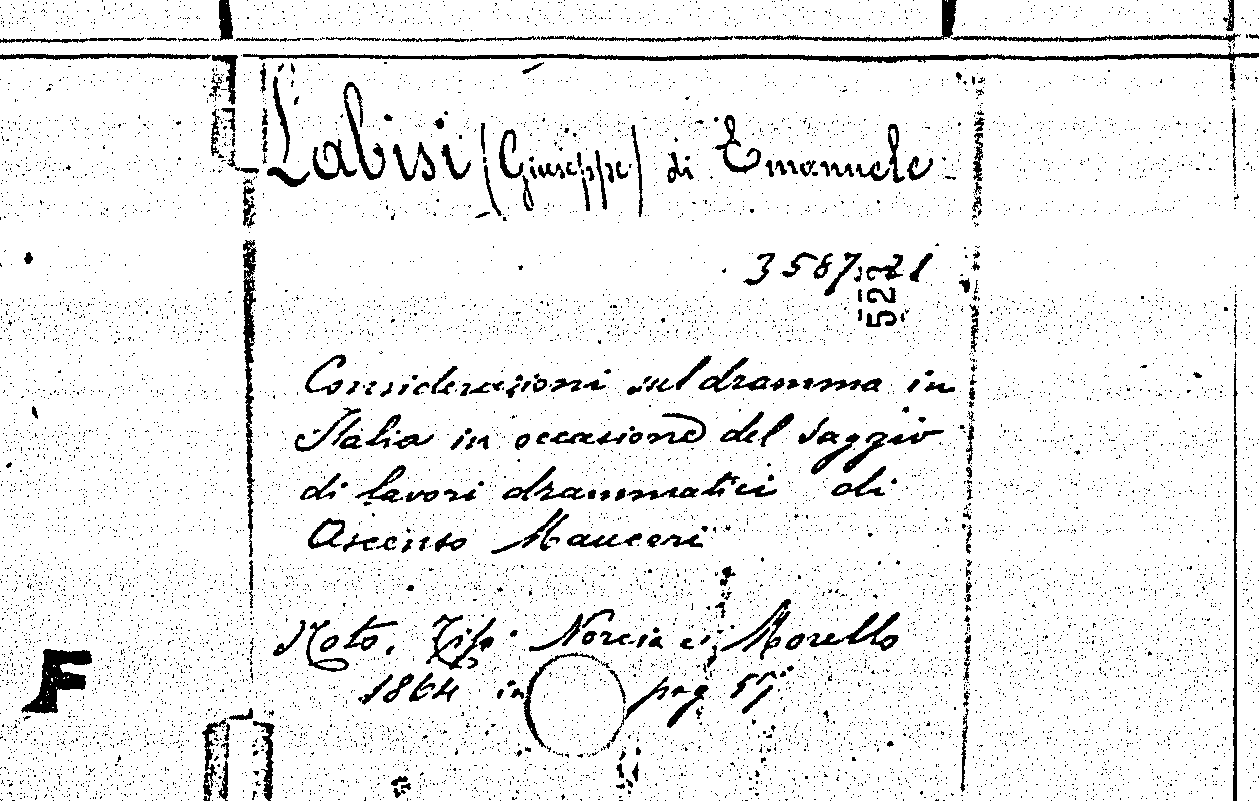 Labisi (Giuseppe) di Emanuele
3587 21
522
Considerazioni sul dramma in
Italia in occasione del saggio
di lavori drammatici di
Ascenso Mauceri
Noto. Tip. Norcia e Morello
1864 in pag 55
F